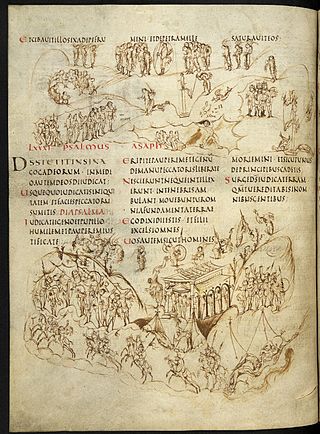 ETCIBAVITILLOSEXADIPEFRU MENTIETDEPETRAMELLE SATURAVITEOS
LXXXI PSALMUS ASAPH
DSSTETITINSINA
GOGADEORUM INMEDI
OAUTEMDEOSDIIUDICAT
USQUEQUOIUDICATISINIQUI
TATEM ETFACIESPECCATORU
SUMITIS DIAPSALMA
IUDICATEEGENOETPUPILLO
HUMILEMETPAUPEREMIUS
TIFICATE
ERIPITEPAUPEREMETEGENU
DEMANUPECCATORISLIBERATE
NESCIERUNTNEQUEINTELLEX
ERUNT INTENEBRISAM
BULANT MOUEBUNTUROM
NIAFUNDAMENTATERRAE
EGODIXIDIIESTIS ETFILII
EXCELSIOMNES
UOSAUTEMSICUTHOMINES
MORIEMINI ETSICUTUNUS
DEPRINCIPIBUSCADETIS
SURGEDSIUDICATERRAM
QMTUEREDITABISINOM
NIBUSGENTIBUS